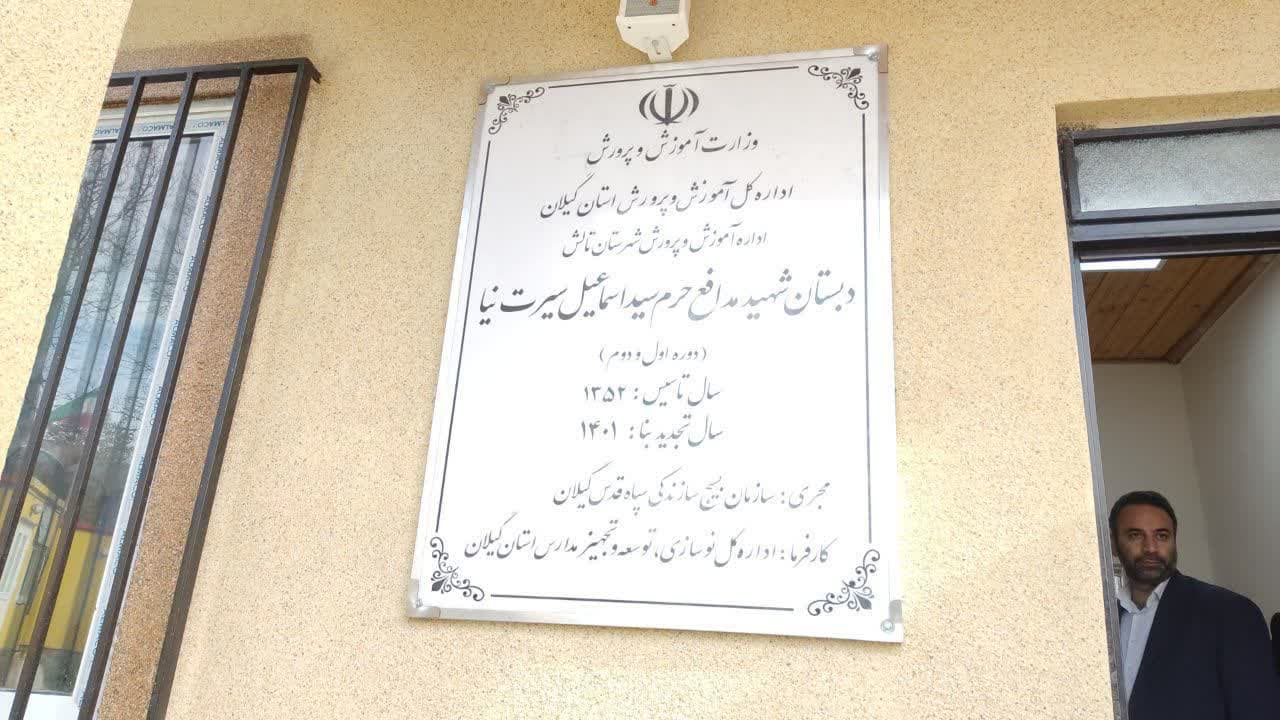 وزارت آموزش و پرورش
اداره کل آموزش و پرورش استان گیلان
اداره آموزش و پرورش شهرستان تالش
دبستان شهید مدافع حرم سید اسماعیل سیرت نیا
(دوره اول و دوم)
سال تاسیس : ۱۳۵۲
سال تجدید بنا : ۱۴۰۱
مجری : سازمان بسیج سازندگی سپاه قدس گیلان
کارفرما : اداره کل نوسازی، توسعه و تجهیز مدارس استان گیلان
ALMACO